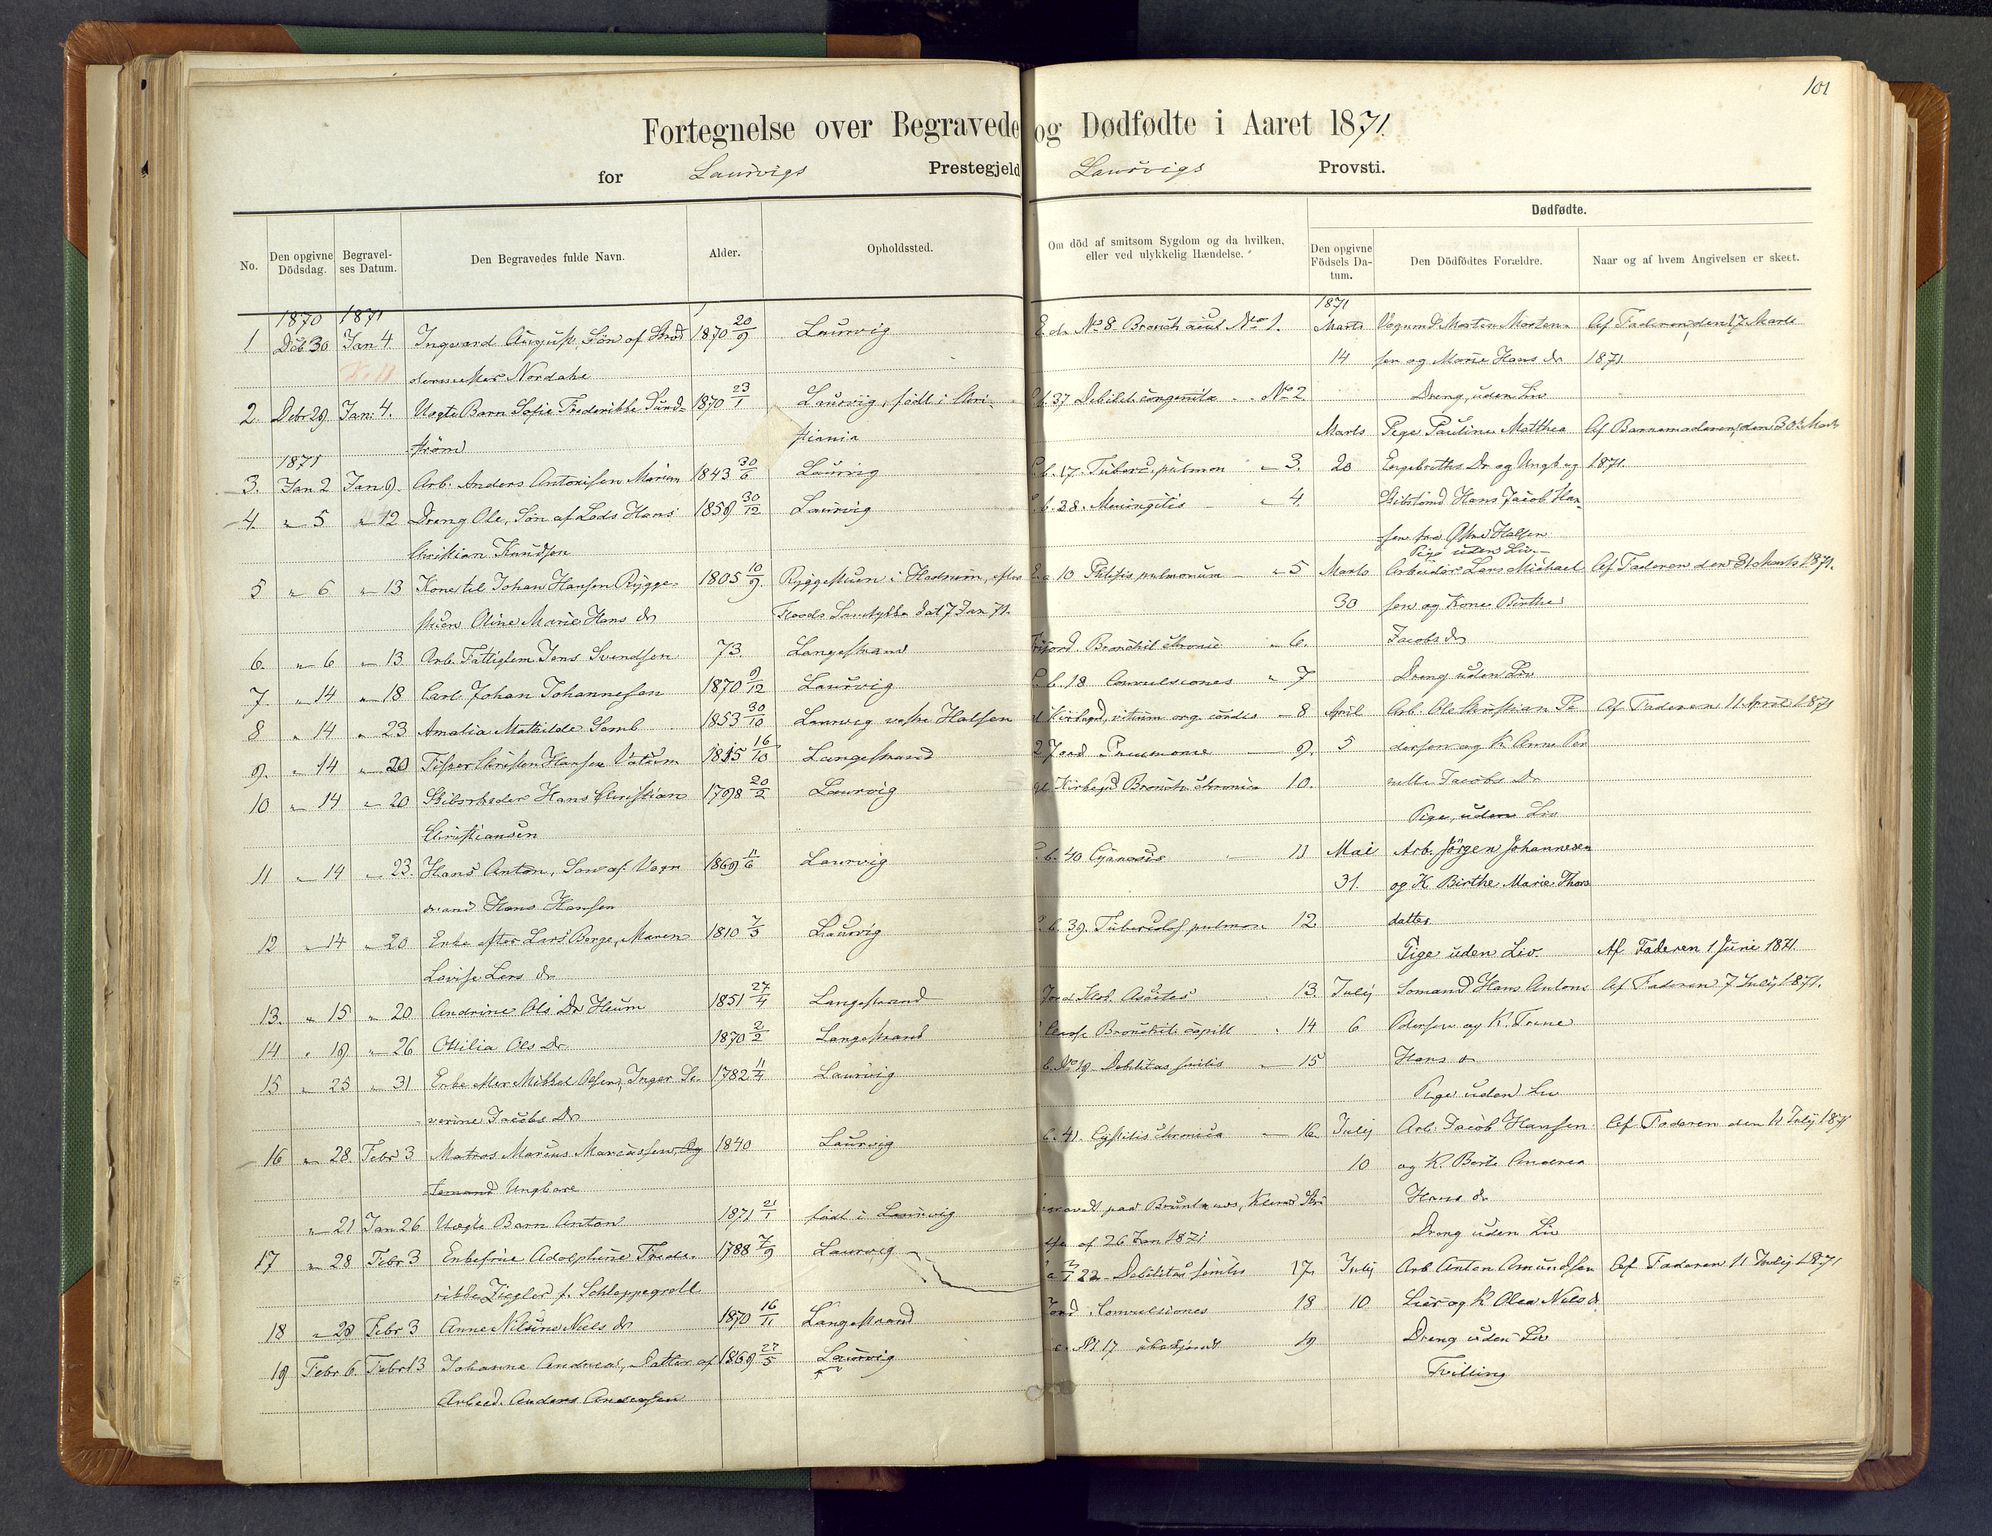 101
Fortegnelse over Begravede og Dødfødte i Aaret 1871.
for Laurvigs Prestegjeld Laurvigs Provsti.
Dødfødte.
No. Den opgivne Dödsdag. Begravelses Datum. Den Begravedes fulde Navn. Alder. Opholdssted. Om död af smitsom Sygdom og da hvilken, eller ved ulykkelig Hændelse. Den opgivne Födsels Datum. Den Dödfödtes Forældre. Naar og af hvem Angivelsen er skeet.
1870 1871
1 Dcb 30 Jan 4. Ingvard August, Søn af 1870 20/9 Laurvig
dermester Nordahl
2. Debr 29 Jan: 4. Uægte Barn Sofie Frederikke Sund- 1870 23/1 Laurvig, født i Chri-
strøm stiania
1871
3. Jan 2 Jan 9. Arb. Anders Antonisen 1843 30/6 Laurvig
4. " 5 " 12 Dreng Ole, Søn af Lods Hans 1859 30/12 Laurvig
Christian Knudsen
5 " 6 " 13 Kone til Johan Hansen Rygge- 1805 10/9. Ryggestuen i Hedrum, efter
stuen Oline Marie Hans dr Foods Samtykke dat 7 Jan 71.
6. " 6 " 13. Arb. Fattiglem Jens Svendsen 73. Langestrand
7 " 14 " 18 Carl Johan Johannesen 1870 9/12 Laurvig
8 " 14 " 23 Amalia Mathilde Semb 1853 30/10 Laurvig vestre Halsen
9. " 14 " 20 Christen Hansen 1815 16/10 Langestrand
10 " 14 " 20 Stibsrheder Hans Christian 1798 20/2 Laurvig
Christiansen
11 " 14 " 23. Hans Anton, Søn af Vogn 1869 11/6 Laurvig
mand Hans Hansen
12 " 14 " 20 Enke efter Lars Berge, Maren 1810 7/3 Laurvig
Lovise Lars dr
13. " 15 " 20 Andrine Ols Dr Heum 1851 27/4 Langestrand
14 " 19 " 26 Ottilia Ols Dr 1870 2/2 Langestrand
15 " 25 " 31 Enke efter Mikkel Olsen, Inger Se- 1782 11/4 Laurvig
verine Jacobs Dr
16 " 28. Febr 3 Matros Marcus Marcussen, 1840 Laurvig
Ungkarl
" 21 Jan 26 Uægte Barn Anton 1871 21/1 født i Laurvig
17 " 28 Febr 3 Enkefrue Adolphine Frede- 1788 7/9 Laurvig
rikke Ziegler f. Schleppegrell
18 " 28 Febr 3 Anne Niels dr 1870 16/11 Langestrand
19 Febr 6. Febr 13 Johanne Andrea, Datter af 1869 27/5 Laurvig
Arbeid. Anders Andersen
No 8. Bronch acut No 1.
b.37 Debilit congenita " No 2
b.17. Tuberc. pulmon " 3.
b.28. Meningitis " 4.
a 10 Phtisis pulmonum " 5
Bronchit chronic " 6.
b.18 Convulsiones " 7
Kirkegd, vitium org. cordis " 8
Jord Pneumonie " 9.
Kirkegd Bronch. chronica 10.
b.40 Cyanosis 11
b.39. Tuberculos pulmon 12.
Ascites 13.
Bronchit capill " 14
b. No 19 Debilitas senilis " 15
b.41. Cystitis chronica " 16
af 26 Jan 1871
22 Debilitas senilis 17.
Jord Convulsiones 18
No 17 ubekjendt 19
1871
Marts Vognmd Morten Morten- Af Faderen den 17 Marts
14 sen og Marie Hans dr 1871.
Dreng, uden Liv
Marts Pige Pauline Matthea Af Barnemoderen, den 30te Marts
20 Engebreths Dr og Ungk og 1871.
Stibstømd Hans Jacob Han-
sen fra Østre Halsen
Pige uden Liv
Marts Arbeider Lars Michael Af Faderen den 31 Marts 1871.
30 sen og Kone Birthe
Jacobs dr
Dreng uden Liv
April Arb. Ole Christian Pe Af Faderen 11 April 1871
5 dersen og K Anne Per
nille Jacobs Dr
Pige, uden Liv
Mai Arb. Jörgen Johannesen
31. og K Birthe Marie Thors
datter
Pige uden Liv. Af Faderen 1 Juni 1871.
Julij Sømand Hans Antons Af Faderen 7 Julij 1871.
6 Pedersen og K. Trine
Hans dr
Pige uden Liv
Julij Arb. Jacob Hansen Af Faderen den 11 Julij 1871
10 og K. Berte Andrea
Hans dr
Dreng uden Liv
Julij Arb Anton Amundsen Af Faderen 11 Julij 1871
10. Lier og K Olea Niels dr
Dreng uden Liv
Tvilling